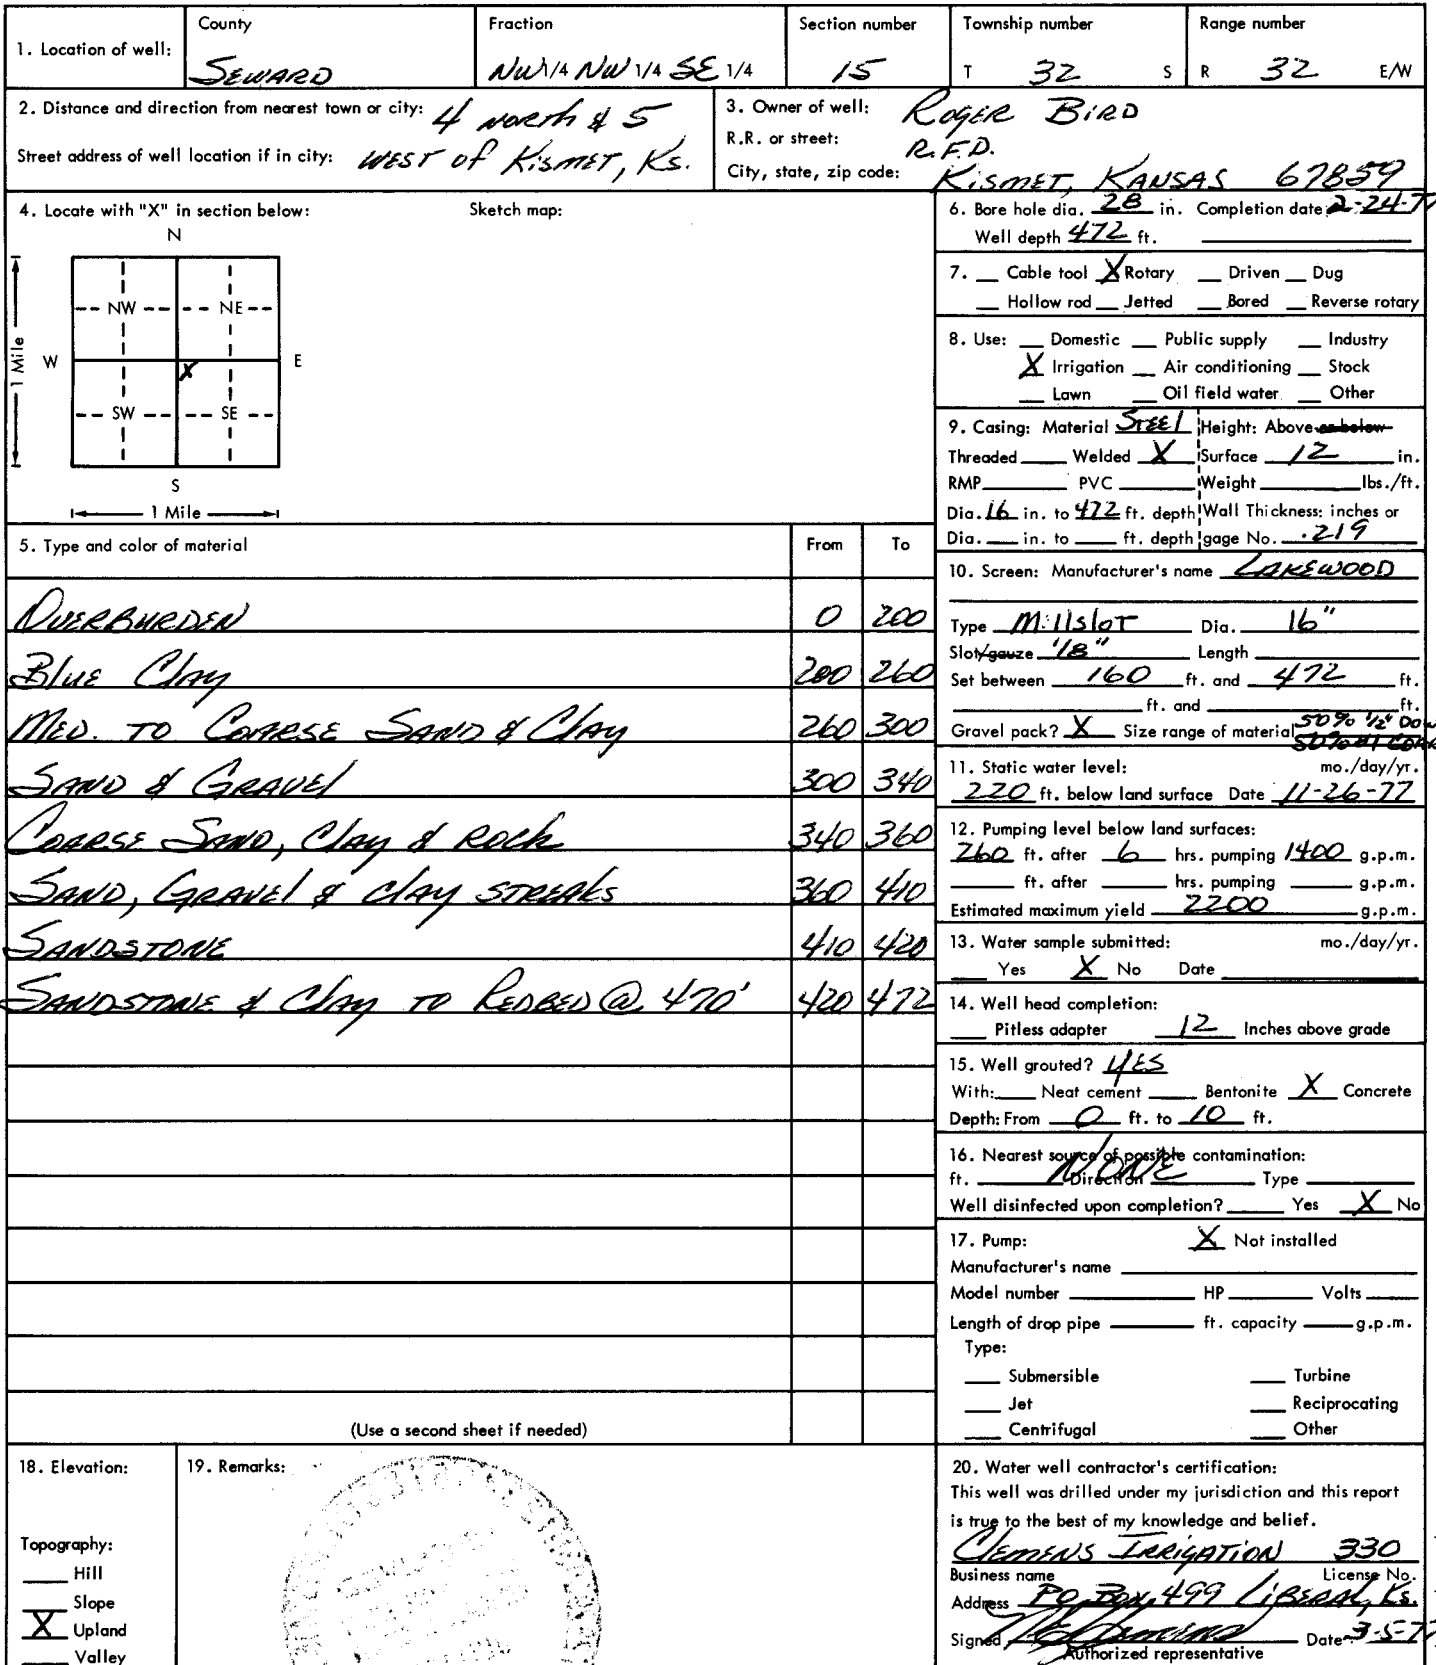 1. Location of well: County Fraction Section number Township number Range number
SEWARD NW 1/4 NW 1/4 SE 1/4 15 T 32 S R 32 E/W
2. Distance and direction from nearest town or city: 4 NORTH & 5
Street address of well location if in city: WEST OF KISMET, KS.
3. Owner of well: ROGER BIRD
R.R. or street: R.F.D.
City, state, zip code: KISMET, KANSAS 67859
4. Locate with "X" in section below: Sketch map:
N
NW NE
W E
X
SW SE
S
1 Mile
1 Mile
5. Type and color of material From To
OVERBURDEN 0 200
Blue Clay 200 260
MED. TO COARSE SAND & Clay 260 300
SAND & GRAVEL 300 340
COARSE SAND, Clay & ROCK 340 360
SAND, GRAVEL & Clay STREAKS 360 410
SANDSTONE 410 420
SANDSTONE & Clay TO REDBED @ 470' 420 472
(Use a second sheet if needed)
6. Bore hole dia. 28 in. Completion date 2-24-77
Well depth 472 ft.
7. Cable tool X Rotary Driven Dug
Hollow rod Jetted Bored Reverse rotary
8. Use: Domestic Public supply Industry
X Irrigation Air conditioning Stock
Lawn Oil field water Other
9. Casing: Material STEEL Height: Above or below
Threaded Welded X Surface 12 in.
RMP PVC Weight lbs./ft.
Dia. 16 in. to 472 ft. depth Wall Thickness: inches or
Dia. in. to ft. depth gage No. .219
10. Screen: Manufacturer's name LAKEWOOD
Type Millslot Dia. 16"
Slot/gauze 1/8" Length
Set between 160 ft. and 472 ft.
ft. and ft.
Gravel pack? X Size range of material 50% 1/2" DOW
50% #1
11. Static water level: mo./day/yr.
220 ft. below land surface Date 11-26-77
12. Pumping level below land surfaces:
260 ft. after 6 hrs. pumping 1400 g.p.m.
ft. after hrs. pumping g.p.m.
Estimated maximum yield 2200 g.p.m.
13. Water sample submitted: mo./day/yr.
Yes X No Date
14. Well head completion:
Pitless adapter 12 Inches above grade
15. Well grouted? YES
With: Neat cement Bentonite X Concrete
Depth: From 0 ft. to 10 ft.
16. Nearest source of possible contamination:
ft. NONE Direction Type
Well disinfected upon completion? Yes X No
17. Pump: X Not installed
Manufacturer's name
Model number HP Volts
Length of drop pipe ft. capacity g.p.m.
Type:
Submersible Turbine
Jet Reciprocating
Centrifugal Other
18. Elevation:
Topography:
Hill
Slope
X Upland
Valley
19. Remarks:
20. Water well contractor's certification:
This well was drilled under my jurisdiction and this report
is true to the best of my knowledge and belief.
CLEMENS IRRIGATION 330
Business name License No.
Address P.O. BOX 499 LIBERAL, KS.
Signed Clemens Date 3-5-77
Authorized representative